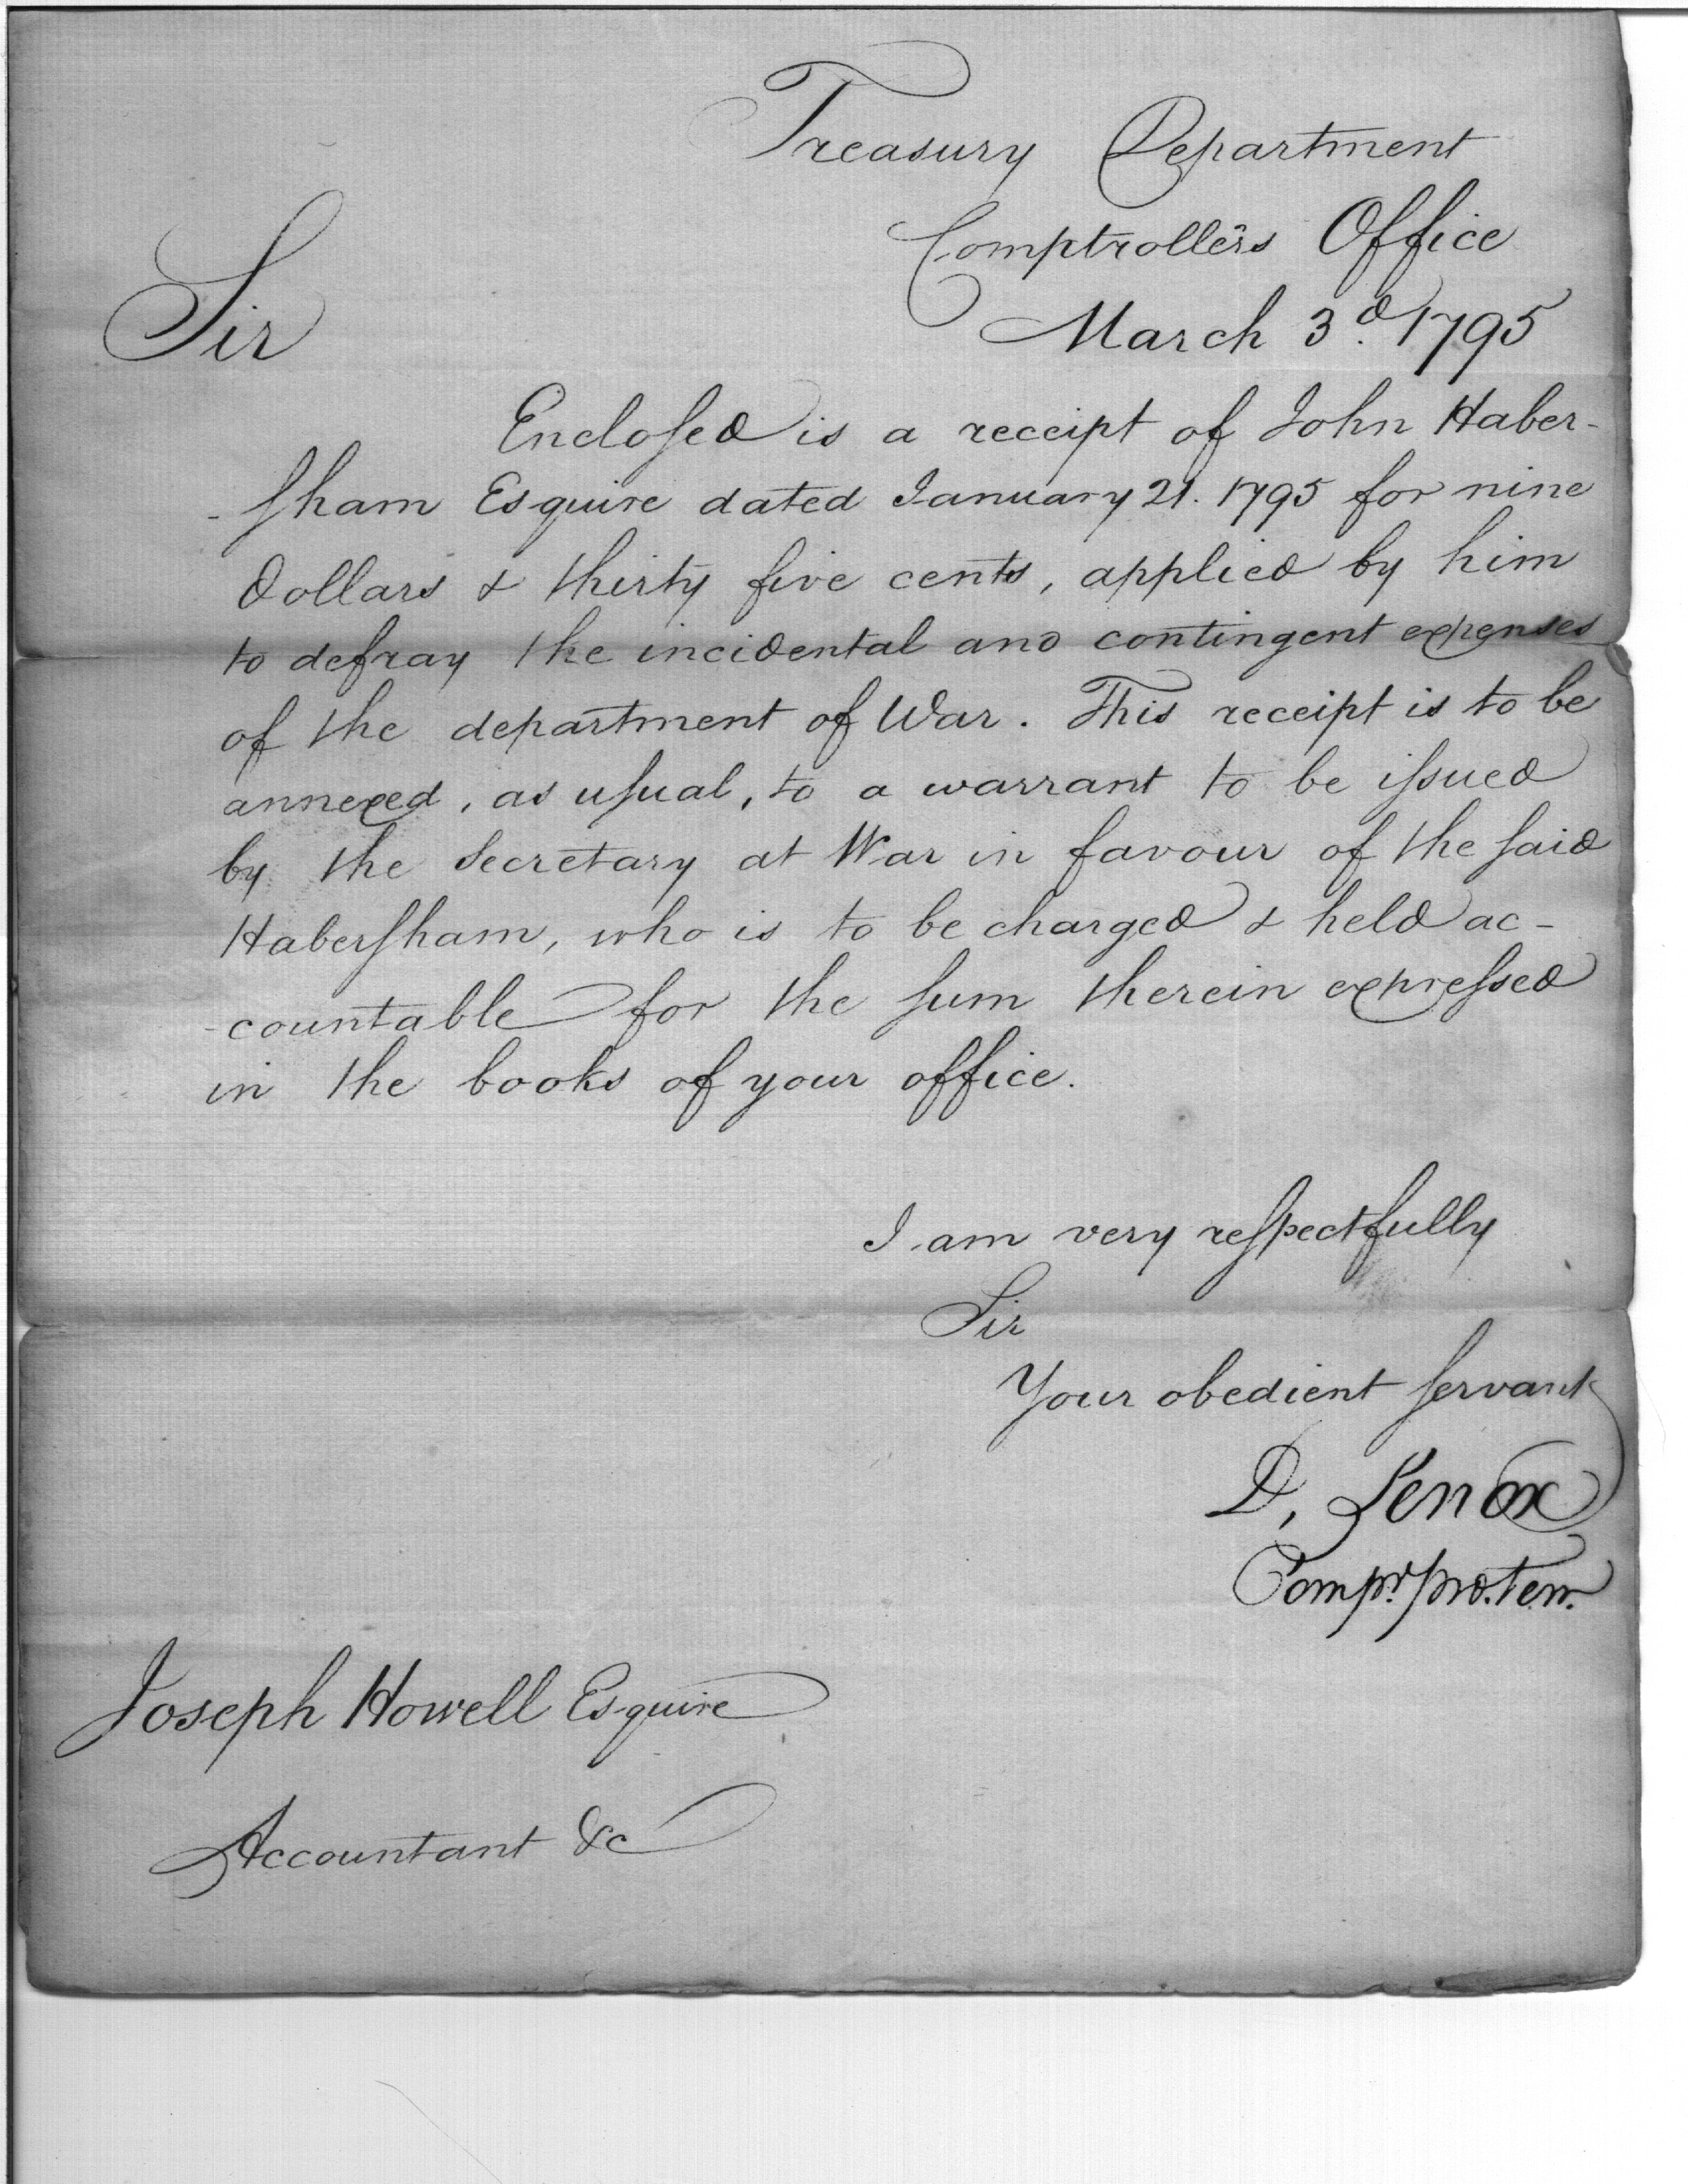 Treasury Department
Comptroller's Office
March 3d. 1795
Sir
Enclosed is a receipt of John Haber-
-sham Esquire dated January 21. 1795 for nine
dollars & thirty five cents, applied by him
to defray the incidental and contingent expenses
of the department of War. This receipt is to be
annexed, as usual, to a warrant to be issued
by the Secretary at War in favour of the said
Habersham, who is to be charged & held ac-
-countable for the sum therein expressed
in the books of your office.
I am very respectfully
Sir
Your obedient servant
D, Lenox
Compr. pro. tem.
Joseph Howell Esquire
Accountant &c